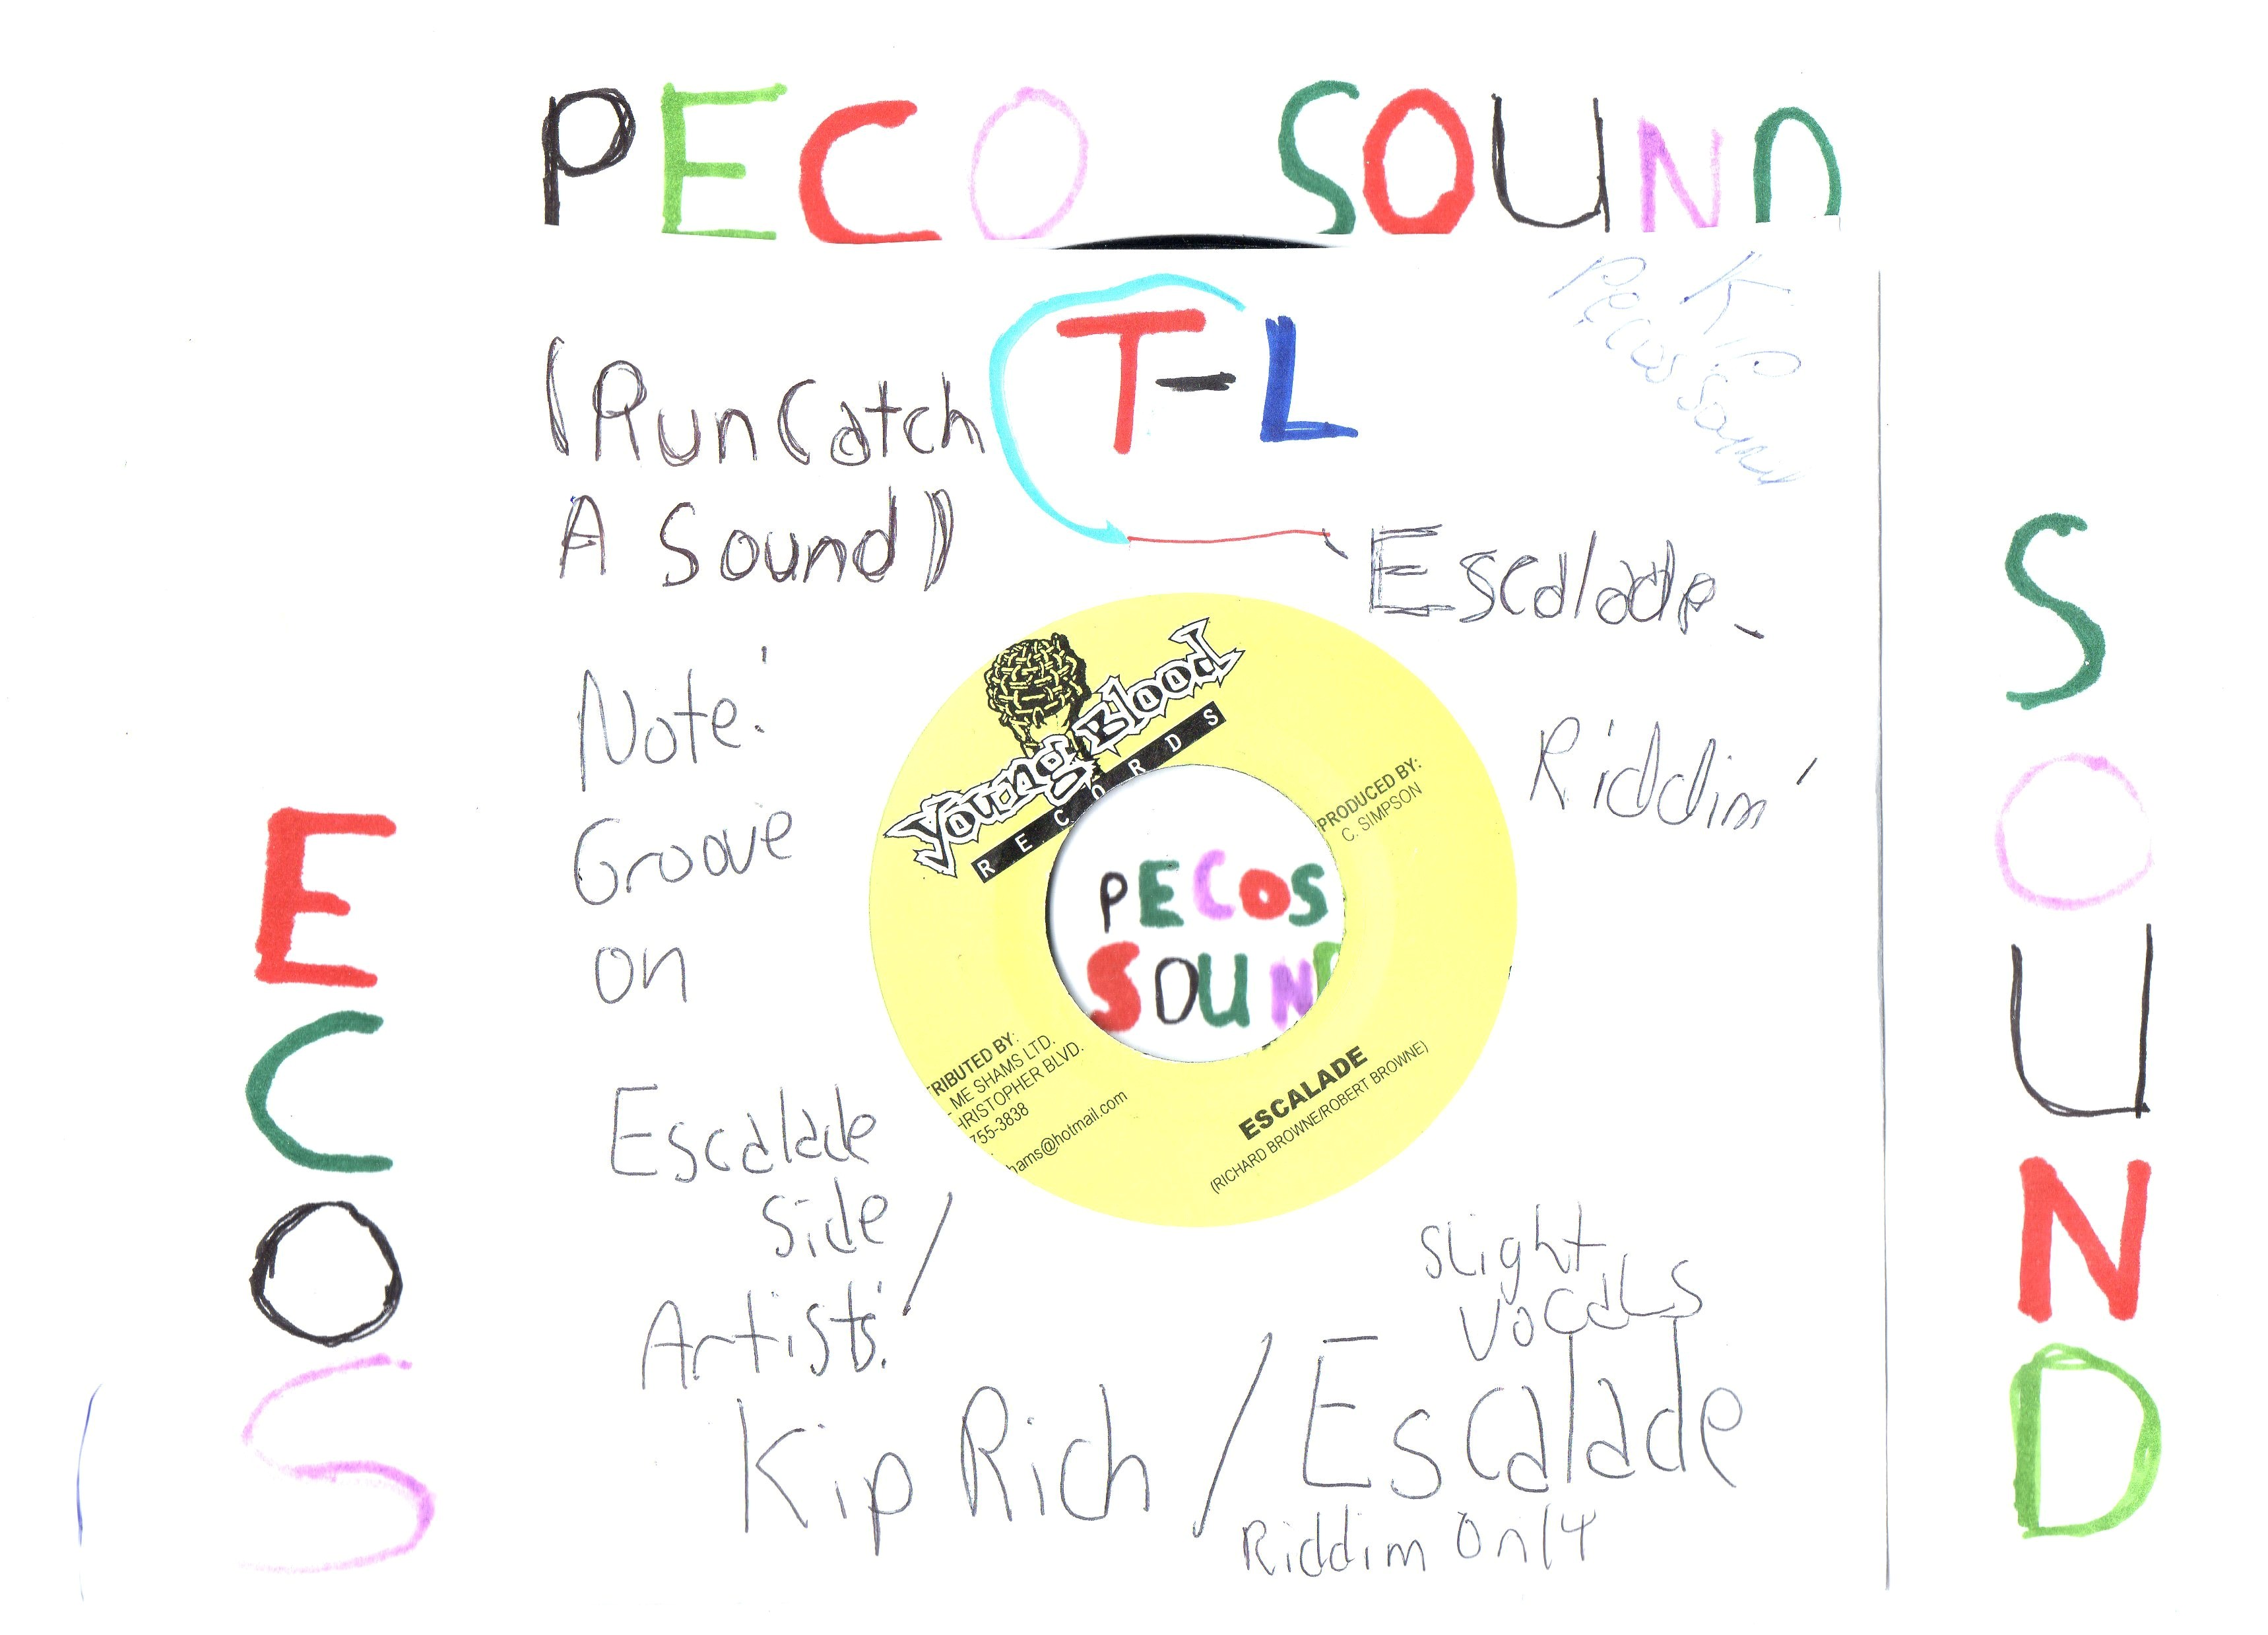 PECO SOUND
K
Pecos Sound
T-L
(Run Catch
A Sound)
Escalade -
Riddim'
Note:
Groove
on
Escalade
Side
Artists:
Kip Rich / Escalade
Slight
Vocals
Riddim Only
Young Blood
RECORDS
PRODUCED BY:
C. SIMPSON
PECOS
SOUND
TRIBUTED BY:
ME SHAMS LTD.
HRISTOPHER BLVD.
755-3838
hams@hotmail.com
ESCALADE
(RICHARD BROWNE/ROBERT BROWNE)
ECOS
SOUND